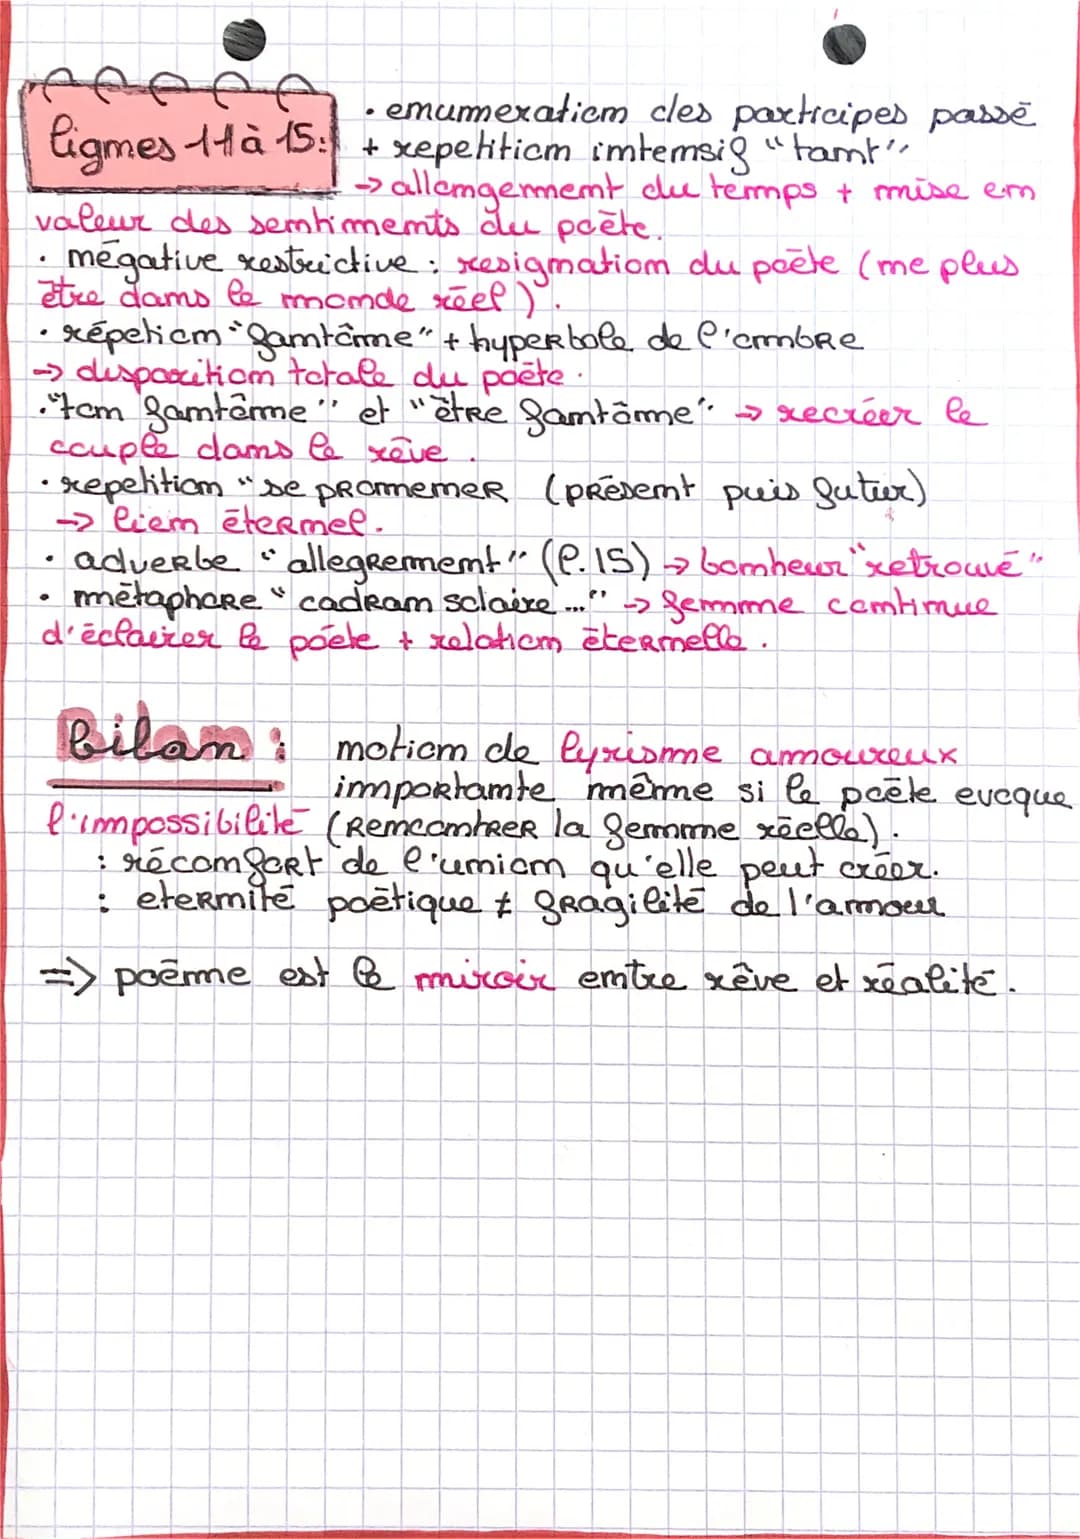 lignes 11 à 15:
• enumeration des participes passé
+ repetition intensif "tant"
→ allongement du temps + mise en
valeur des sentiments du poète.
• négative restrictive : resignation du poète (ne plus
être dans le monde réel).
• répetion "fantôme" + hyperbole de l'ombre
→ disparition totale du poète.
• "ton fantôme" et "être fantôme" → recréer le
couple dans le rêve.
• repetition "se promener (présent puis futur)
→ lien éternel.
• adverbe "allegrement" (l.15) → bonheur "retrouvé"
• métaphore "cadran solaire..." → femme continue
d'éclairer le poète + relation éternelle.
Bilan :
notion de lyrisme amoureux
importante même si le poète evoque
l'impossibilité (Rencontrer la femme réelle).
: réconfort de l'union qu'elle peut créer.
: eternité poétique ≠ fragilité de l'amour
=> poème est le miroir entre rêve et réalité.